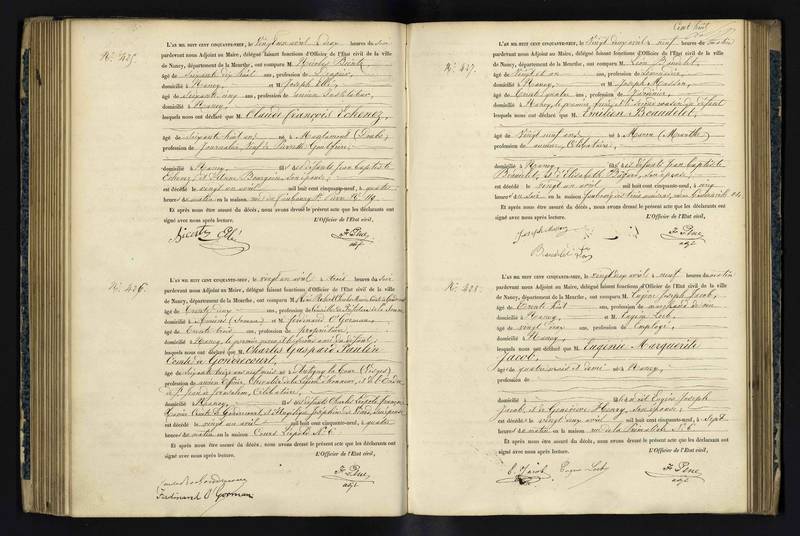 N.º 425.
L'AN MIL HUIT CENT CINQUANTE-NEUF, le vingt un avril à deux heures du soir
pardevant nous Adjoint au Maire, délégué faisant fonctions d'Officier de l'État civil de la ville
de Nancy, département de la Meurthe, ont comparu M. Nicolas
âgé de soixante ans, profession de
domicilié à Nancy, et M. Joseph
âgé de soixante cinq ans, profession de
domicilié à Nancy,
lesquels nous ont déclaré que M. Claude François Echenez,
âgé de soixante huit ans né à Montamont (Doubs)
profession de Journalier, Veuf de
domicilié à Nancy, fils des défunts Jean Baptiste
Echenez, et Bourgeois, son épouse,
est décédé le vingt un avril mil huit cent cinquante-neuf, à quatre
heures du matin en la maison rue du faubourg St Pierre N.º 119
Et après nous être assuré du décès, nous avons dressé le présent acte que les déclarants ont
signé avec nous après lecture. L'Officier de l'État civil,
adjt
N.º 426.
L'AN MIL HUIT CENT CINQUANTE-NEUF, le vingt un avril à trois heures du soir
pardevant nous Adjoint au Maire, délégué faisant fonctions d'Officier de l'État civil de la ville
de Nancy, département de la Meurthe, ont comparu M. Charles
âgé de trente cinq ans, profession de
domicilié à Amiens (Somme) et M. Ferdinand O'Gorman,
âgé de trente trois ans, profession de propriétaire,
domicilié à Nancy, le premier neveu, le second ami du défunt,
lesquels nous ont déclaré que M. Charles Gaspard Paulin
Comte de Gondrecourt,
âgé de soixante né à Autigny la Tour (Vosges)
profession de ancien officier, Chevalier de la Légion d'honneur, et de l'Ordre
de St Jean de Jérusalem, Célibataire,
domicilié à Nancy, fils des défunts Charles Léopold François
Comte de Gondrecourt et son épouse
est décédé le vingt un avril mil huit cent cinquante-neuf, à quatre
heures du matin en la maison Cours Léopold N.º 6
Et après nous être assuré du décès, nous avons dressé le présent acte que les déclarants ont
signé avec nous après lecture. L'Officier de l'État civil,
adjt
Ferdinand O'Gorman
Cent huit
N.º 427.
L'AN MIL HUIT CENT CINQUANTE-NEUF, le vingt deux avril à neuf heures du matin
pardevant nous Adjoint au Maire, délégué faisant fonctions d'Officier de l'État civil de la ville
de Nancy, département de la Meurthe, ont comparu M. Léon Beaudelet,
âgé de vingt un ans, profession de
domicilié à Nancy, et M. Joseph
âgé de trente quatre ans, profession de
domicilié à Nancy, le premier frère, et le second voisin du défunt
lesquels nous ont déclaré que M. Emilien Beaudelet,
âgé de vingt neuf ans né à (Meurthe)
profession de Célibataire,
domicilié à Nancy, fils des défunts Jean Baptiste
Beaudelet, et d'Elisabeth son épouse,
est décédé le vingt un avril mil huit cent cinquante-neuf, à cinq
heures du soir en la maison faubourg des trois maisons,
Et après nous être assuré du décès, nous avons dressé le présent acte que les déclarants ont
signé avec nous après lecture. L'Officier de l'État civil,
Joseph
Beaudelet
adjt
N.º 428.
L'AN MIL HUIT CENT CINQUANTE-NEUF, le vingt deux avril à neuf heures du matin
pardevant nous Adjoint au Maire, délégué faisant fonctions d'Officier de l'État civil de la ville
de Nancy, département de la Meurthe, ont comparu M. Eugène Joseph Jacob,
âgé de trente huit ans, profession de
domicilié à Nancy, et M. Eugène
âgé de vingt deux ans, profession de Employé,
domicilié à Nancy,
lesquels nous ont déclaré que M. Eugénie Marguerite
Jacob,
âgé de quatre mois et demi né à Nancy,
profession de
domicilié à fille dudit Eugène Joseph
Jacob, et de Geneviève Henry, son épouse,
est décédé le vingt deux avril mil huit cent cinquante-neuf, à sept
heures du matin en la maison rue de la Primatiale N.º 6
Et après nous être assuré du décès, nous avons dressé le présent acte que les déclarants ont
signé avec nous après lecture. L'Officier de l'État civil,
E. Jacob Eugène
adjt